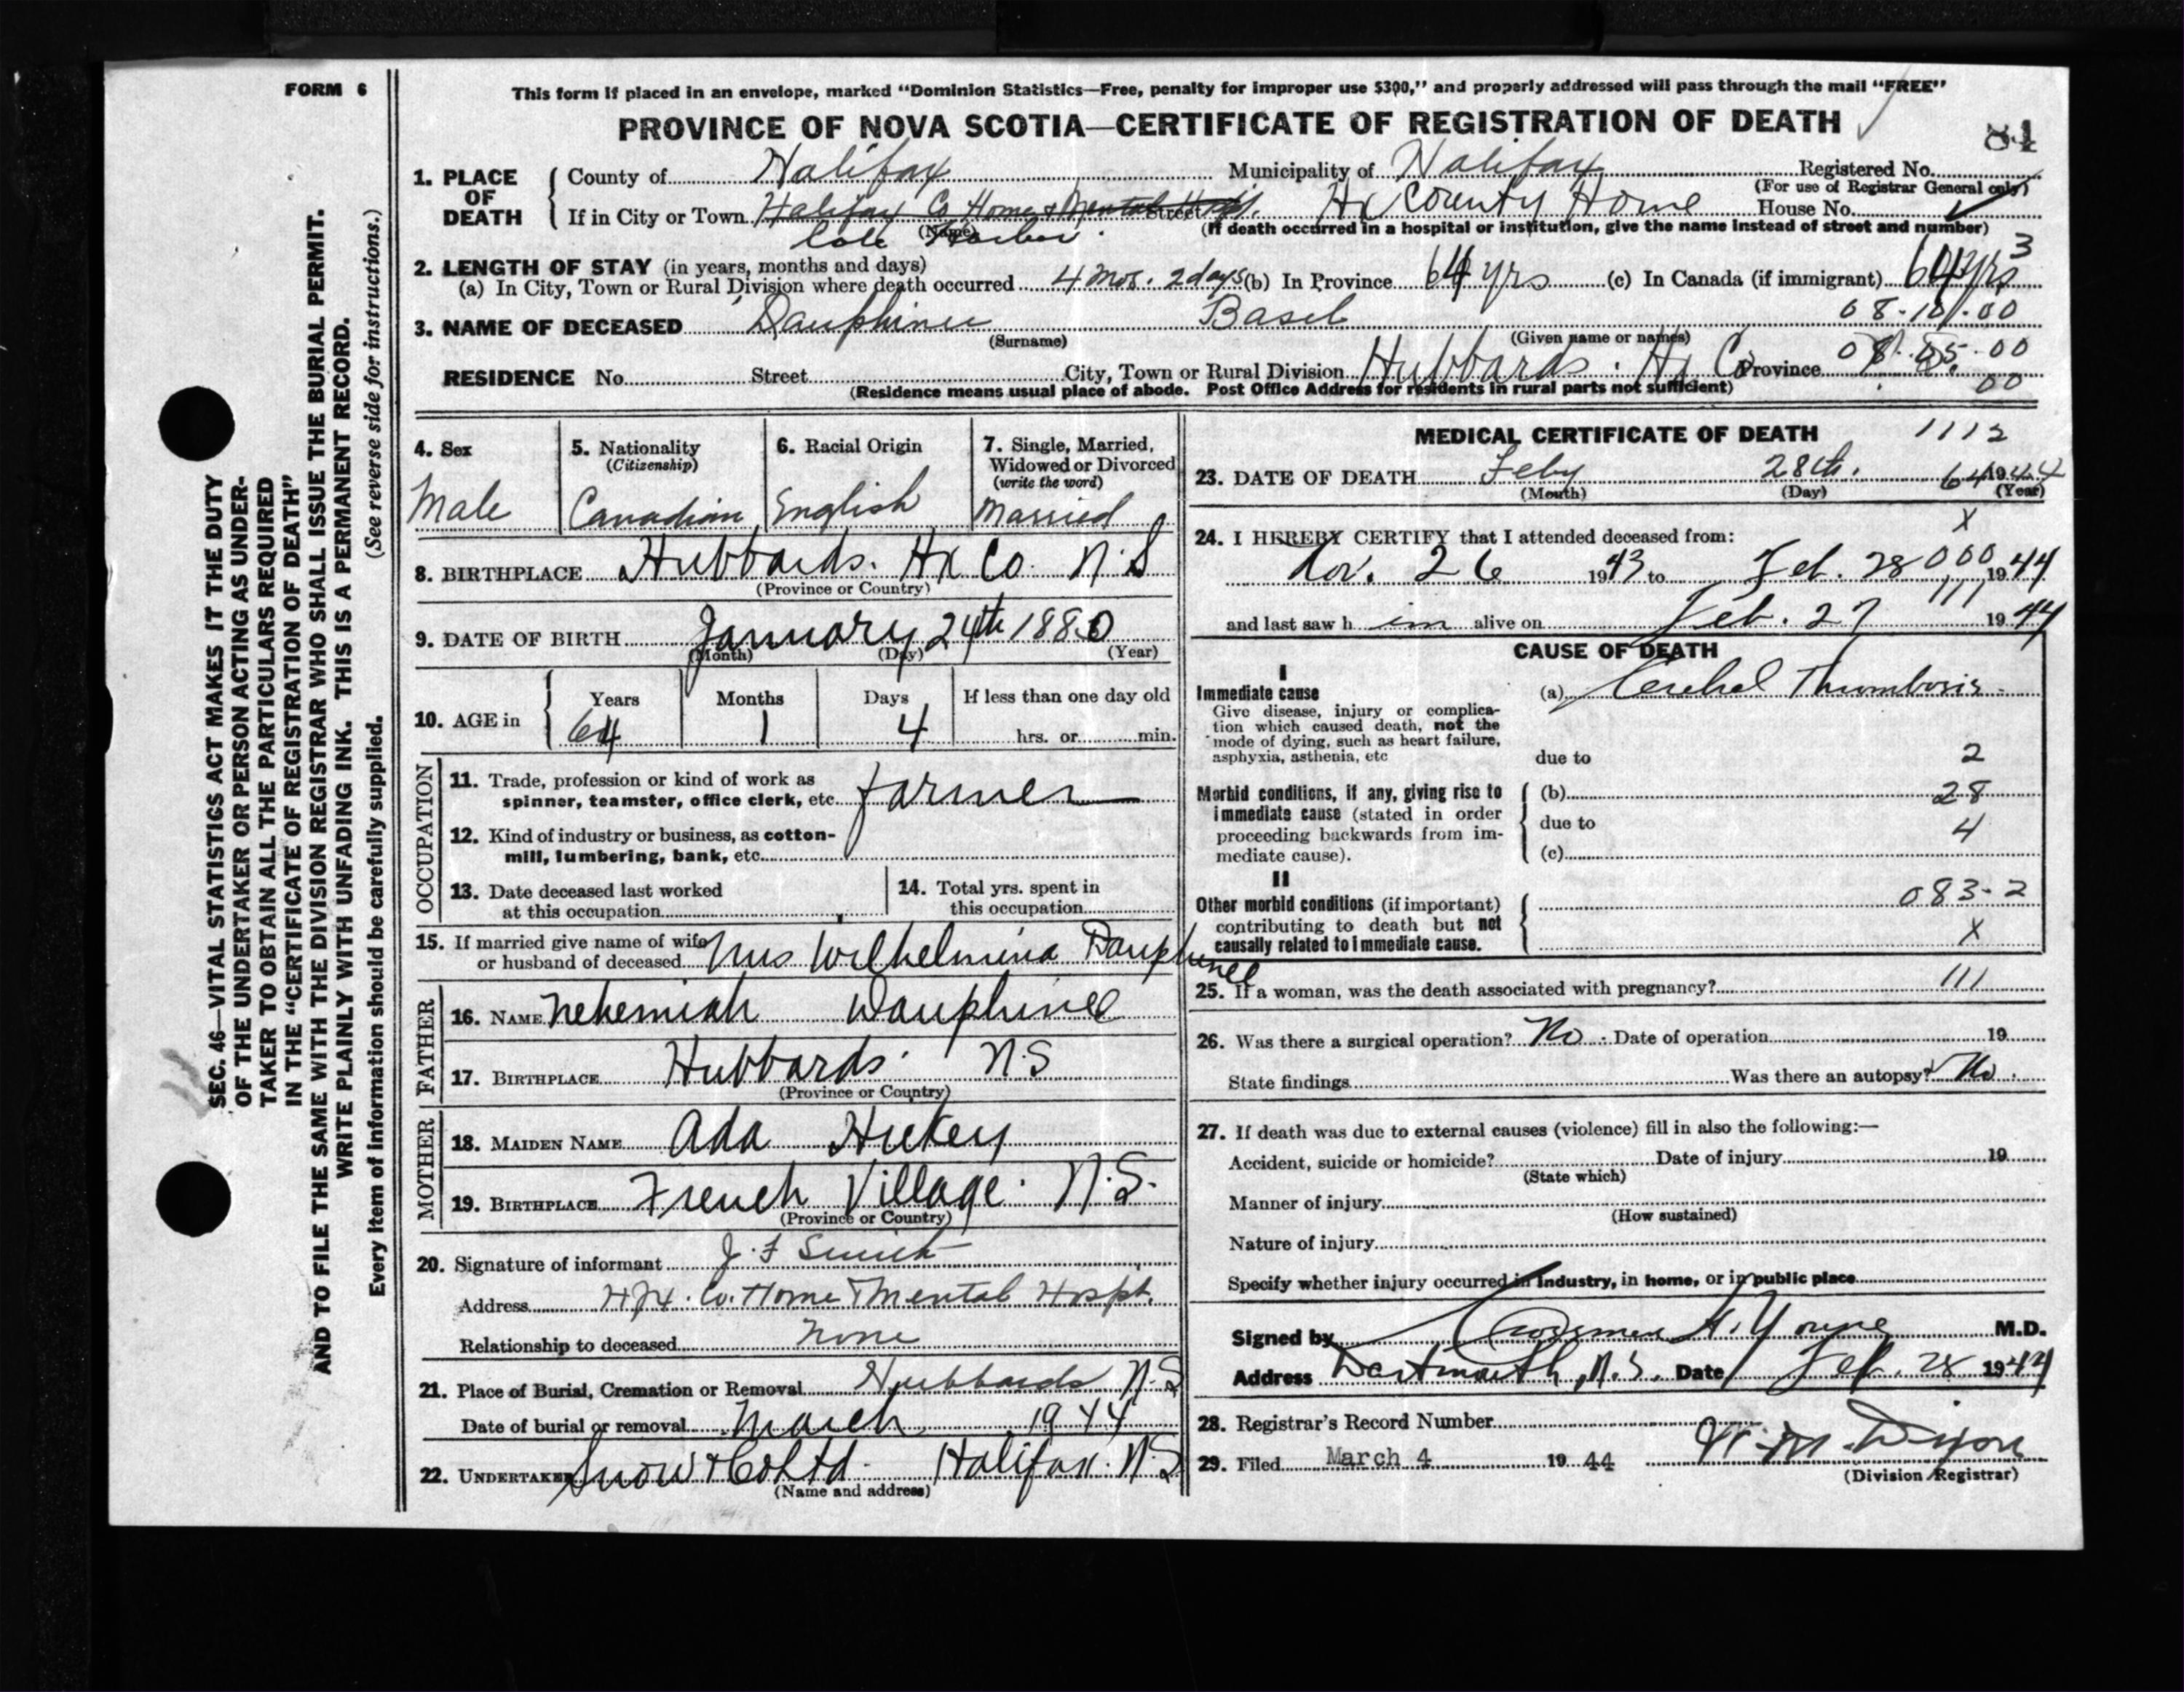 FORM 6
This form if placed in an envelope, marked “Dominion Statistics—Free, penalty for improper use $300,” and properly addressed will pass through the mail “FREE”
PROVINCE OF NOVA SCOTIA—CERTIFICATE OF REGISTRATION OF DEATH
84
1. PLACE OF DEATH
County of Halifax Municipality of Halifax Registered No.
(For use of Registrar General only)
If in City or Town Halifax Co Home & Mental Hospt. Street Hx County Home House No.
(Name) (If death occurred in a hospital or institution, give the name instead of street and number)
Cole Harbor.
3
2. LENGTH OF STAY (in years, months and days)
(a) In City, Town or Rural Division where death occurred 4 mos. 2 days (b) In Province 64 yrs (c) In Canada (if immigrant) 64 yrs
08.101.00
3. NAME OF DECEASED Dauphinee Basil
(Surname) (Given name or names)
RESIDENCE No. Street City, Town or Rural Division Hubbards. Hx Co Province
00
(Residence means usual place of abode. Post Office Address for residents in rural parts not sufficient)
4. Sex
Male
5. Nationality
(Citizenship)
Canadian
6. Racial Origin
English
7. Single, Married,
Widowed or Divorced
(write the word)
Married
8. BIRTHPLACE Hubbards. Hx Co. N.S
(Province or Country)
9. DATE OF BIRTH January 24th 1880
(Month) (Day) (Year)
10. AGE in
Years Months Days If less than one day old
64 1 4 hrs. or min.
OCCUPATION
11. Trade, profession or kind of work as
spinner, teamster, office clerk, etc. farmer
12. Kind of industry or business, as cotton-
mill, lumbering, bank, etc.
13. Date deceased last worked
at this occupation
14. Total yrs. spent in
this occupation
15. If married give name of wife
or husband of deceased Mrs Wilhelmina Dauphinee
FATHER
16. NAME Nehemiah Dauphinee
17. BIRTHPLACE Hubbards. N.S
(Province or Country)
MOTHER
18. MAIDEN NAME Ada Hickey
19. BIRTHPLACE French Village. N.S.
(Province or Country)
20. Signature of informant J. F Smith
Address Hfx. Co. Home & Mental Hospt.
Relationship to deceased None
21. Place of Burial, Cremation or Removal Hubbards N.S
Date of burial or removal March 1944
22. UNDERTAKER Snow & Co Ltd. Halifax. N.S
(Name and address)
MEDICAL CERTIFICATE OF DEATH
1112
23. DATE OF DEATH Feby 28th. 64 1944
(Month) (Day) (Year)
X
24. I HEREBY CERTIFY that I attended deceased from:
Nov. 26 1943 to Feb. 28 000 1944
111
and last saw h im alive on Feb. 27 1944
CAUSE OF DEATH
I
Immediate cause
Give disease, injury or complica-
tion which caused death, not the
mode of dying, such as heart failure,
asphyxia, asthenia, etc
(a) Cerebral Thrombosis.
due to 2
Morbid conditions, if any, giving rise to
immediate cause (stated in order
proceeding backwards from im-
mediate cause).
(b) 28
due to 4
(c)
II
Other morbid conditions (if important)
contributing to death but not
causally related to immediate cause.
083-2
X
25. If a woman, was the death associated with pregnancy? 111
26. Was there a surgical operation? No. Date of operation 19
State findings Was there an autopsy? No.
27. If death was due to external causes (violence) fill in also the following:—
Accident, suicide or homicide? Date of injury 19
(State which)
Manner of injury
(How sustained)
Nature of injury
Specify whether injury occurred in industry, in home, or in public place
Signed by H. Young M.D.
Address Dartmouth, N.S. Date Feb. 28 1944
28. Registrar's Record Number
29. Filed March 4 1944 W. M. Dixon
(Division Registrar)
SEC. 46—VITAL STATISTICS ACT MAKES IT THE DUTY
OF THE UNDERTAKER OR PERSON ACTING AS UNDER-
TAKER TO OBTAIN ALL THE PARTICULARS REQUIRED
IN THE “CERTIFICATE OF REGISTRATION OF DEATH”
AND TO FILE THE SAME WITH THE DIVISION REGISTRAR WHO SHALL ISSUE THE BURIAL PERMIT.
WRITE PLAINLY WITH UNFADING INK. THIS IS A PERMANENT RECORD.
Every item of information should be carefully supplied. (See reverse side for instructions.)